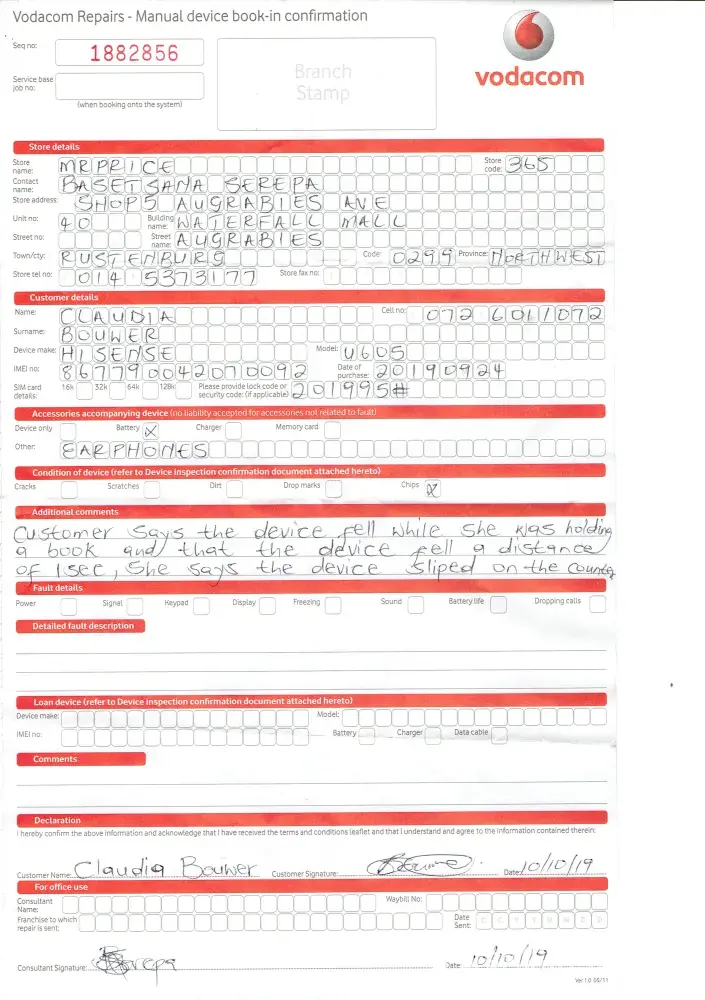 Vodacom Repairs - Manual device book-in confirmation
Seq no: 1882856
Branch Stamp
vodacom
Service base job no:
(when booking onto the system)
Store details
Store name: MR PRICE Store code: 365
Contact name: BASETSANA SEREPA
Store address: SHOP 5 AUGRABIES AVE
Unit no: 40 Building name: WATERFALL MALL
Street no: Street name: AUGRABIES
Town/cty: RUSTENBURG Code: 0299 Province: NORTHWEST
Store tel no: 014 5373177 Store fax no:
Customer details
Name: CLAUDIA Cell no: 072 6011072
Surname: BOUWER
Device make: HISENSE Model: U605
IMEI no: 867790042070092 Date of purchase: 20190924
SIM card details: 16k 32k 64k 128k Please provide lock code or security code: (if applicable) 201995#
Accessories accompanying device (no liability accepted for accessories not related to fault)
Device only Battery X Charger Memory card
Other: EARPHONES
Condition of device (refer to Device inspection confirmation document attached hereto)
Cracks Scratches Dirt Drop marks Chips X
Additional comments
Customer says the device fell while she was holding
a book and that the device fell a distance
of 1 sec, She says the device sliped on the counter
Fault details
Power Signal Keypad Display Freezing Sound Battery life Dropping calls
Detailed fault description
Loan device (refer to Device inspection confirmation document attached hereto)
Device make: Model:
IMEI no: Battery Charger Data cable
Comments
Declaration
I hereby confirm the above information and acknowledge that I have received the terms and conditions leaflet and that I understand and agree to the information contained therein:
Customer Name: Claudia Bouwer Customer Signature: Date: 10/10/19
For office use
Consultant Name: Waybill No:
Franchise to which repair is sent: Date Sent: C C Y Y M M D D
Consultant Signature: Serepa Date: 10/10/19
Ver 1.0 05/11